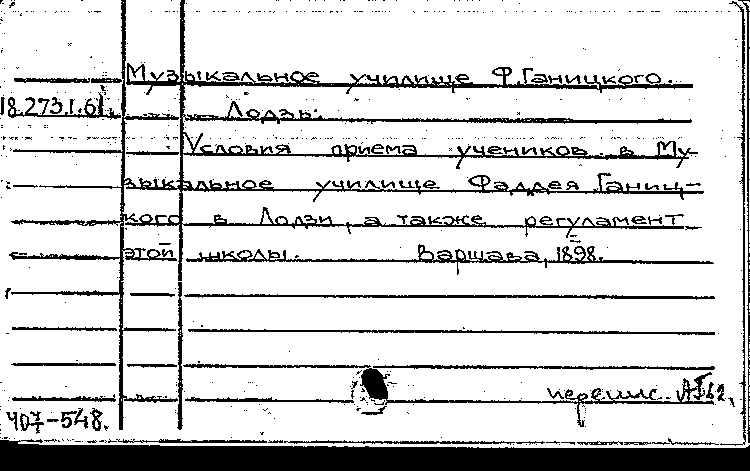 Музыкальное училище Ф.Ганицкого.
18.273.1.61. Лодзь.
Условия приема учеников в Му-
зыкальное училище Фаддея Ганиц-
кого в Лодзи, а также регуламент
этой школы. Варшава, 1898.
перепис.
Ч07-548.